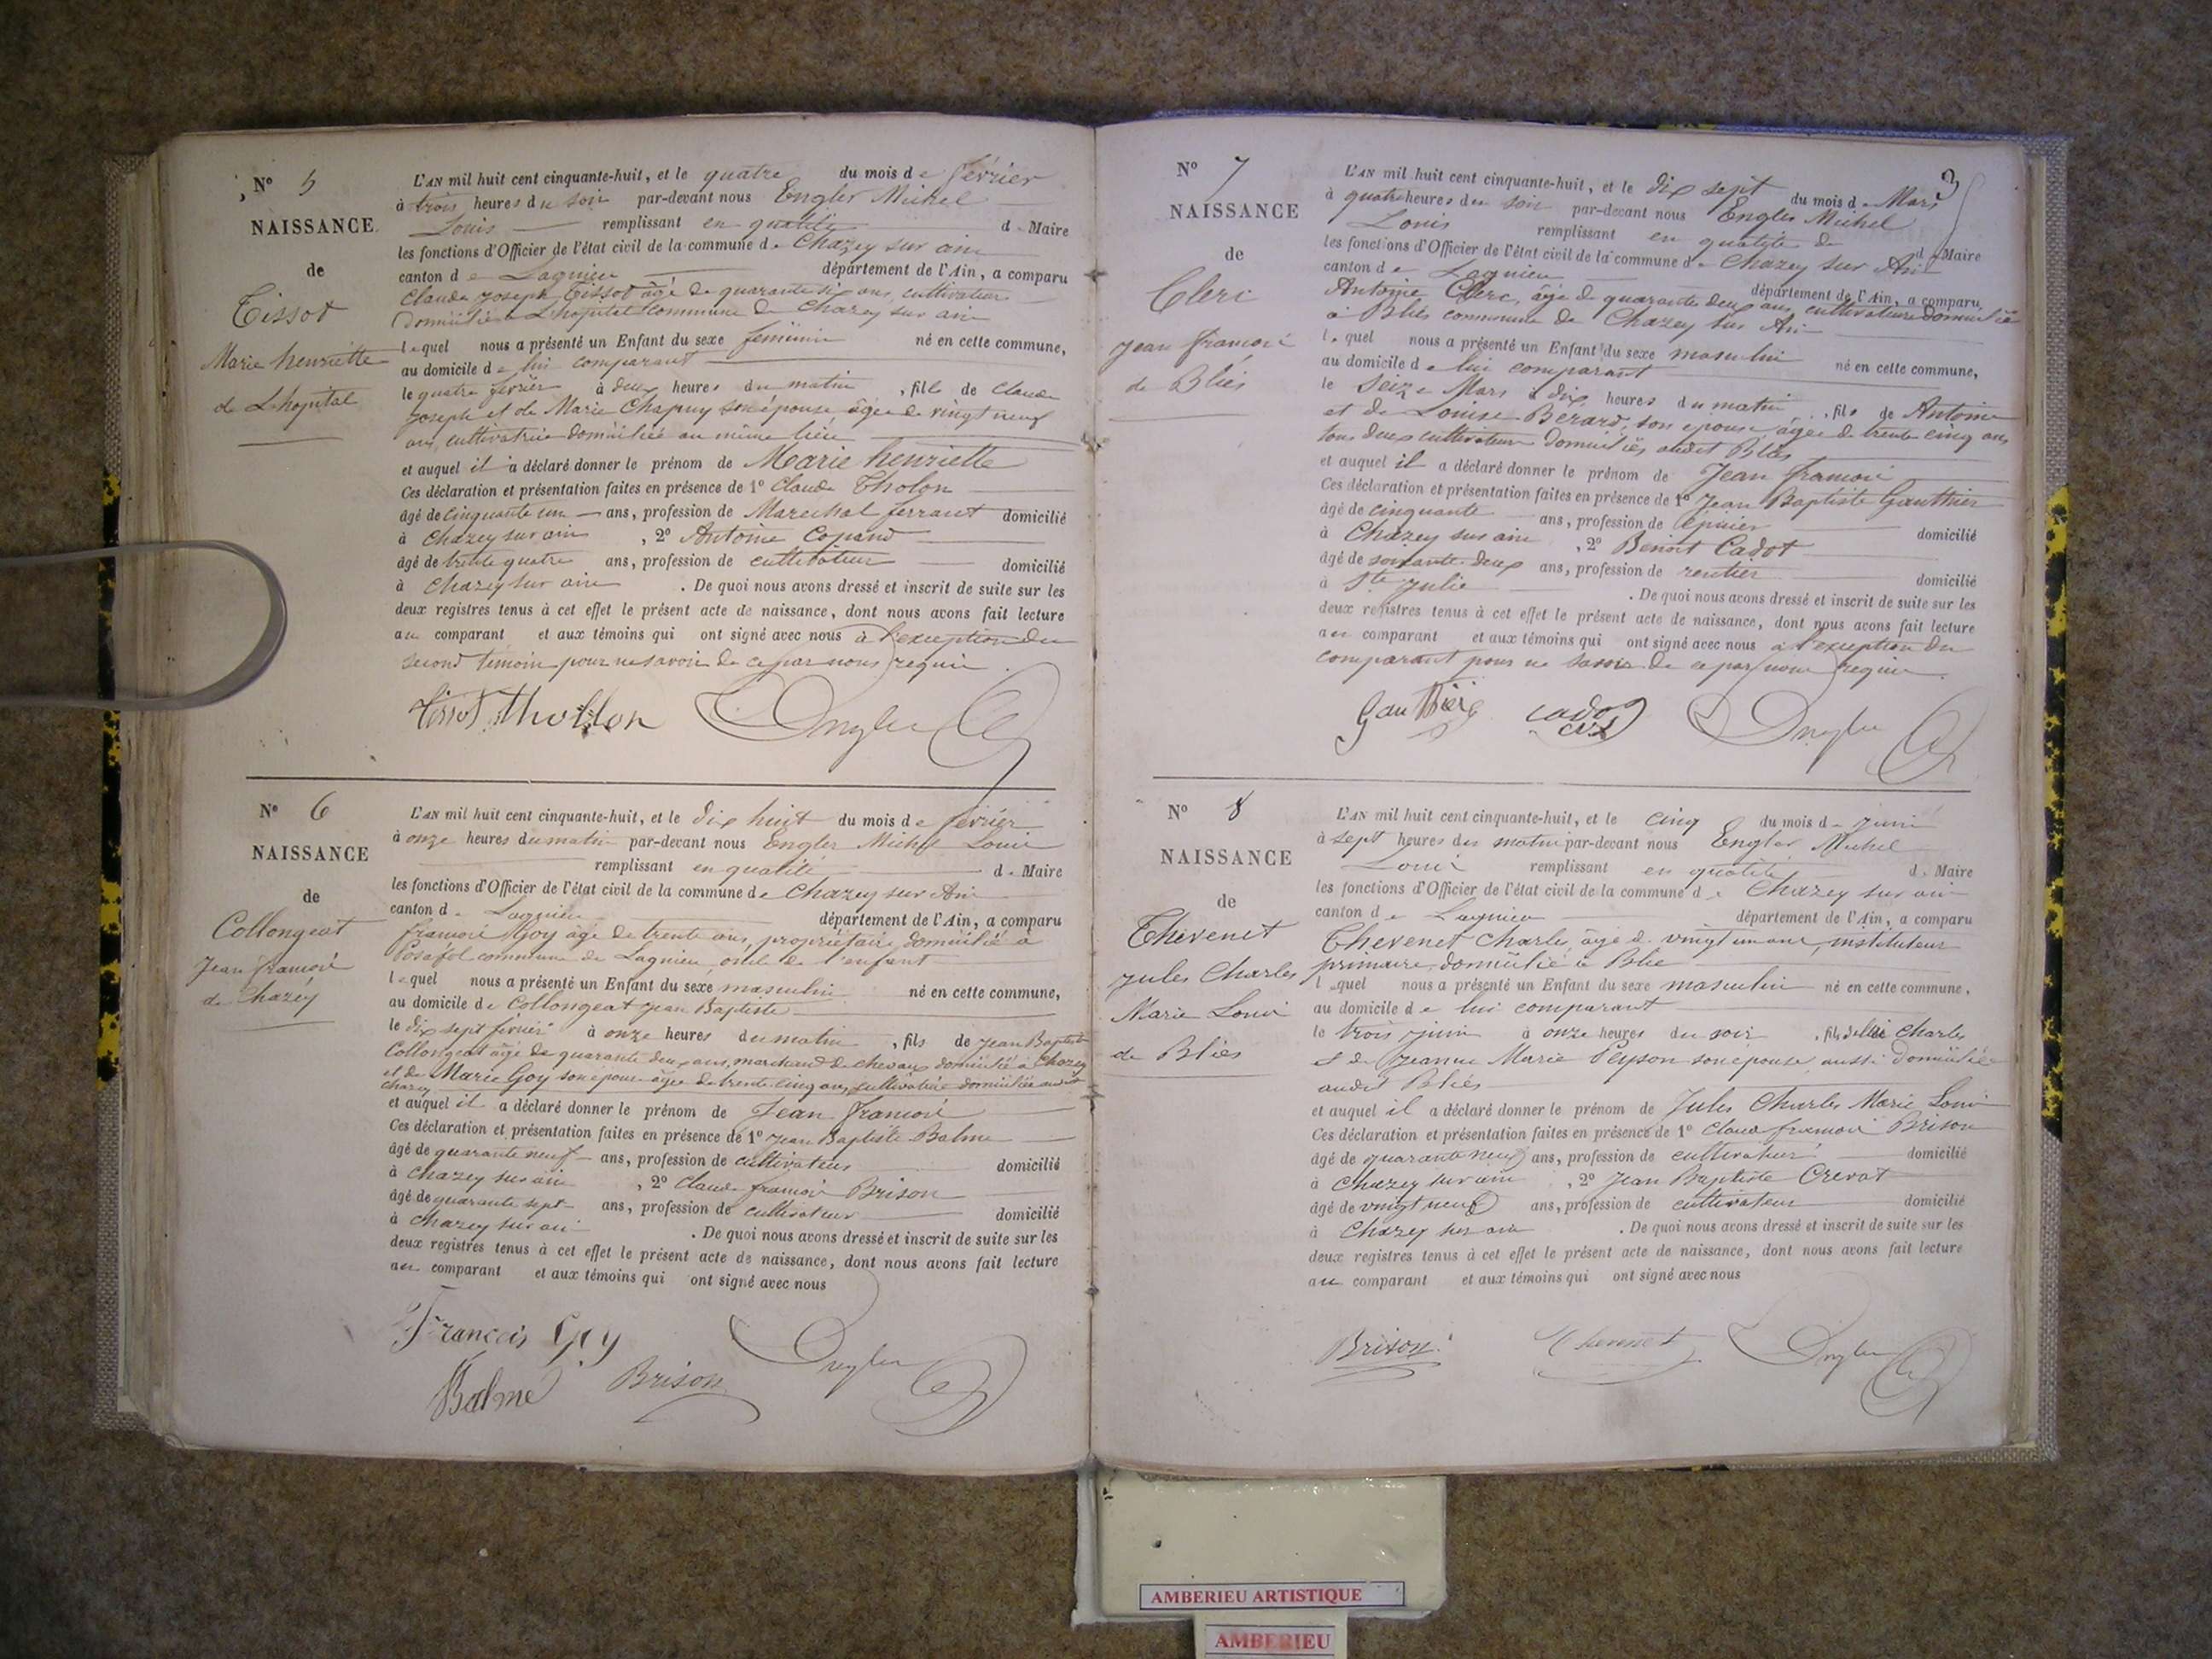 N° 5
NAISSANCE
de
Tissot
Marie henriette
de Lhopital
L'AN mil huit cent cinquante-huit, et le quatre du mois de février
à trois heures du soir par-devant nous Engler Michel
Louis remplissant en qualité de Maire
les fonctions d'Officier de l'état civil de la commune de Chazey sur ain
canton de Lagnieu département de l'Ain, a comparu
Claude Joseph Tissot âgé de quarante six ans, cultivateur
Domicilié à Lhopital commune de Chazey sur ain
lequel nous a présenté un Enfant du sexe féminin né en cette commune,
au domicile de lui comparant
le quatre février à deux heures du matin, fille de Claude
Joseph et de Marie Chapuy son épouse âgée de vingt neuf
ans, cultivatrice domiciliée au même lieu
et auquel il a déclaré donner le prénom de Marie henriette
Ces déclaration et présentation faites en présence de 1° Claude Tholon
âgé de cinquante un ans, profession de Marechal ferrant domicilié
à Chazey sur ain, 2° Antoine Copand
âgé de trente quatre ans, profession de cultivateur domicilié
à Chazey sur ain. De quoi nous avons dressé et inscrit de suite sur les
deux registres tenus à cet effet le présent acte de naissance, dont nous avons fait lecture
au comparant et aux témoins qui ont signé avec nous à l'exception du
second témoin pour ne savoir de ce par nous requis.
Tissot Thollon Engler
N° 6
NAISSANCE
de
Collongeat
Jean françois
de Chazey
L'AN mil huit cent cinquante-huit, et le dix huit du mois de février
à onze heures du matin par-devant nous Engler Michel Louis
remplissant en qualité de Maire
les fonctions d'Officier de l'état civil de la commune de Chazey sur Ain
canton de Lagnieu département de l'Ain, a comparu
françois Goy âgé de trente ans, propriétaire, domicilié à
Posafol commune de Lagnieu, oncle de l'enfant
lequel nous a présenté un Enfant du sexe masculin né en cette commune,
au domicile de Collongeat Jean Baptiste
le dix sept février à onze heures du matin, fils de Jean Baptiste
Collongeat âgé de quarante deux ans, marchand de chevaux domicilié à Chazey
et de Marie Goy son épouse âgée de trente cinq ans, cultivatrice domiciliée audit
chazey
et auquel il a déclaré donner le prénom de Jean françois
Ces déclaration et présentation faites en présence de 1° Jean Baptiste Balme
âgé de quarante neuf ans, profession de cultivateur domicilié
à Chazey sur ain, 2° Claude françois Brison
âgé de quarante sept ans, profession de cultivateur domicilié
à Chazey sur ain. De quoi nous avons dressé et inscrit de suite sur les
deux registres tenus à cet effet le présent acte de naissance, dont nous avons fait lecture
au comparant et aux témoins qui ont signé avec nous
François Goy Engler
Balme Brison
3
N° 7
NAISSANCE
de
Clerc
Jean françois
de Bliés
L'AN mil huit cent cinquante-huit, et le dix sept du mois de Mars
à quatre heures du soir par-devant nous Engler Michel
Louis remplissant en qualité de de Maire
les fonctions d'Officier de l'état civil de la commune de Chazey sur Ain
canton de Lagnieu département de l'Ain, a comparu
Antoine Clerc, âgé de quarante deux ans, cultivateur domicilié
à Bliés commune de Chazey sur Ain
lequel nous a présenté un Enfant du sexe masculin né en cette commune,
au domicile de lui comparant
le Seize Mars à dix heures du matin, fils de Antoine
et de Louise Berard, son épouse âgée de trente cinq ans
tous deux cultivateurs domiciliés audit Bliés
et auquel il a déclaré donner le prénom de Jean françois
Ces déclaration et présentation faites en présence de 1° Jean Baptiste Gauthier
âgé de cinquante ans, profession de épicier domicilié
à Chazey sur ain, 2° Benoit Cadot
âgé de soixante deux ans, profession de rentier domicilié
à Ste Julie. De quoi nous avons dressé et inscrit de suite sur les
deux registres tenus à cet effet le présent acte de naissance, dont nous avons fait lecture
au comparant et aux témoins qui ont signé avec nous à l'exception du
comparant pour ne savoir de ce par nous requis.
Gauthier cadot Engler
N° 8
NAISSANCE
de
Thevenet
Jules Charles
Marie Louis
de Bliés
L'AN mil huit cent cinquante-huit, et le cinq du mois de juin
à sept heures du matin par-devant nous Engler Michel
Louis remplissant en qualité de Maire
les fonctions d'Officier de l'état civil de la commune de Chazey sur ain
canton de Lagnieu département de l'Ain, a comparu
Thevenet Charles, âgé de vingt un ans, instituteur
primaire, domicilié à Blie
lequel nous a présenté un Enfant du sexe masculin né en cette commune,
au domicile de lui comparant
le trois juin à onze heures du soir, fils de lui Charles
et de Jeanne Marie Peyson son épouse, aussi domiciliée
audit Bliés
et auquel il a déclaré donner le prénom de Jules Charles Marie Louis
Ces déclaration et présentation faites en présence de 1° Claude françois Brison
âgé de quarante neuf ans, profession de cultivateur domicilié
à Chazey sur ain, 2° Jean Baptiste Crevat
âgé de vingt neuf ans, profession de cultivateur domicilié
à Chazey sur ain. De quoi nous avons dressé et inscrit de suite sur les
deux registres tenus à cet effet le présent acte de naissance, dont nous avons fait lecture
au comparant et aux témoins qui ont signé avec nous
Brison Thevenet Engler
AMBERIEU ARTISTIQUE
AMBERIEU